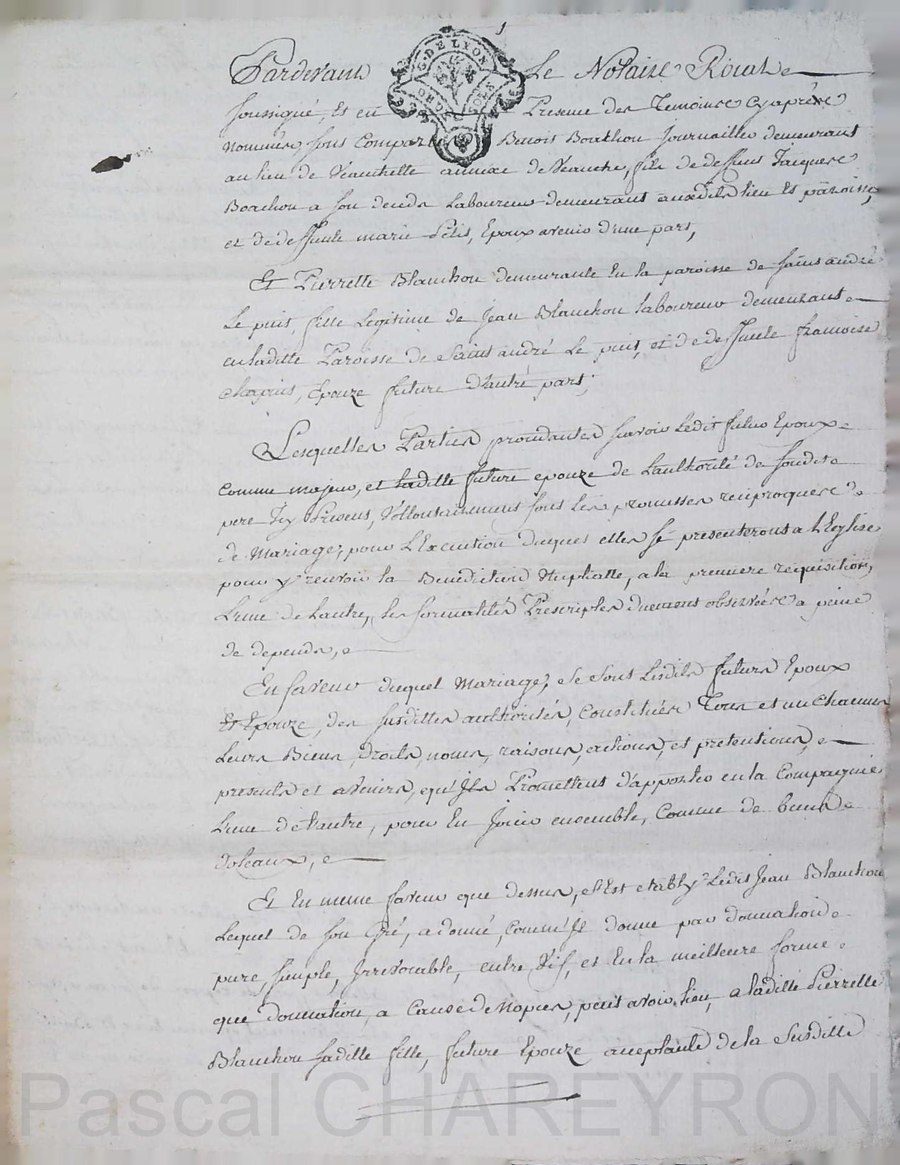 1
G. DE LYON
Pardevant Le Notaire Roial
soussigné, Et en Presence des Temoins cyaprès
nommés, sont Compar Benoit Boachou journaillier demeurant
au lieu de Veauchette annixe de Veauche, fils de deffunt Jacques
Boachou a son deceds Laboureur demeurant auxdits lieu Et paroisse,
et de deffunte marie Petit, Epoux avenir d'une part,
Et Pierrette Blanchou demeurante En la paroisse de saint andré
Le puit, fille Legitime de Jean Blanchou Laboureur demeurant
en laditte Paroisse de Saint andré Le puit, et de deffunte francoise
Chapuis, Epouze future d'autre part;
Lesquelles Parties procedantes scavoir Ledit futur Epoux
Comme majeur, et Laditte future epouze de Lauthorité de Soudit
pere Icy Present, Vollontairement sont Les promesses reciproques
de Mariage, pour L'Execution duquel elles se presenteront a L'Eglise
pour y recevoir la Benediction Nuptialle, a la premiere requisition,
Lune de Lautre, les formalités Prescriptes duement observées a peine
de depends,
En faveur duquel Mariage, se sont Lesdits futurs Epoux
Et Epouze, des susdittes authorités, Constitués Tous et un Chacuns
Leurs Biens, Droits, noms, raisons, actions, et pretentions,
presents et avenirs, qu'Ils Promettent d'apporter en la Compagnie
Lune de Lautre, pour En Joüir ensemble, Comme de biens
dotaux,
Et En meme faveur que dessus, s'Est etably Ledit Jean Blanchou
Lequel de son Gré, a donné, Comm'Il donne par donnation
pure, simple, Irrevocable, entre Vif, et En la meilleure forme
que donnation, a Cause de Nopces, peut avoir lieu, a laditte Pierrette
Blanchou saditte fille, future Epouze acceptante de la Susditte
Pascal CHAREYRON